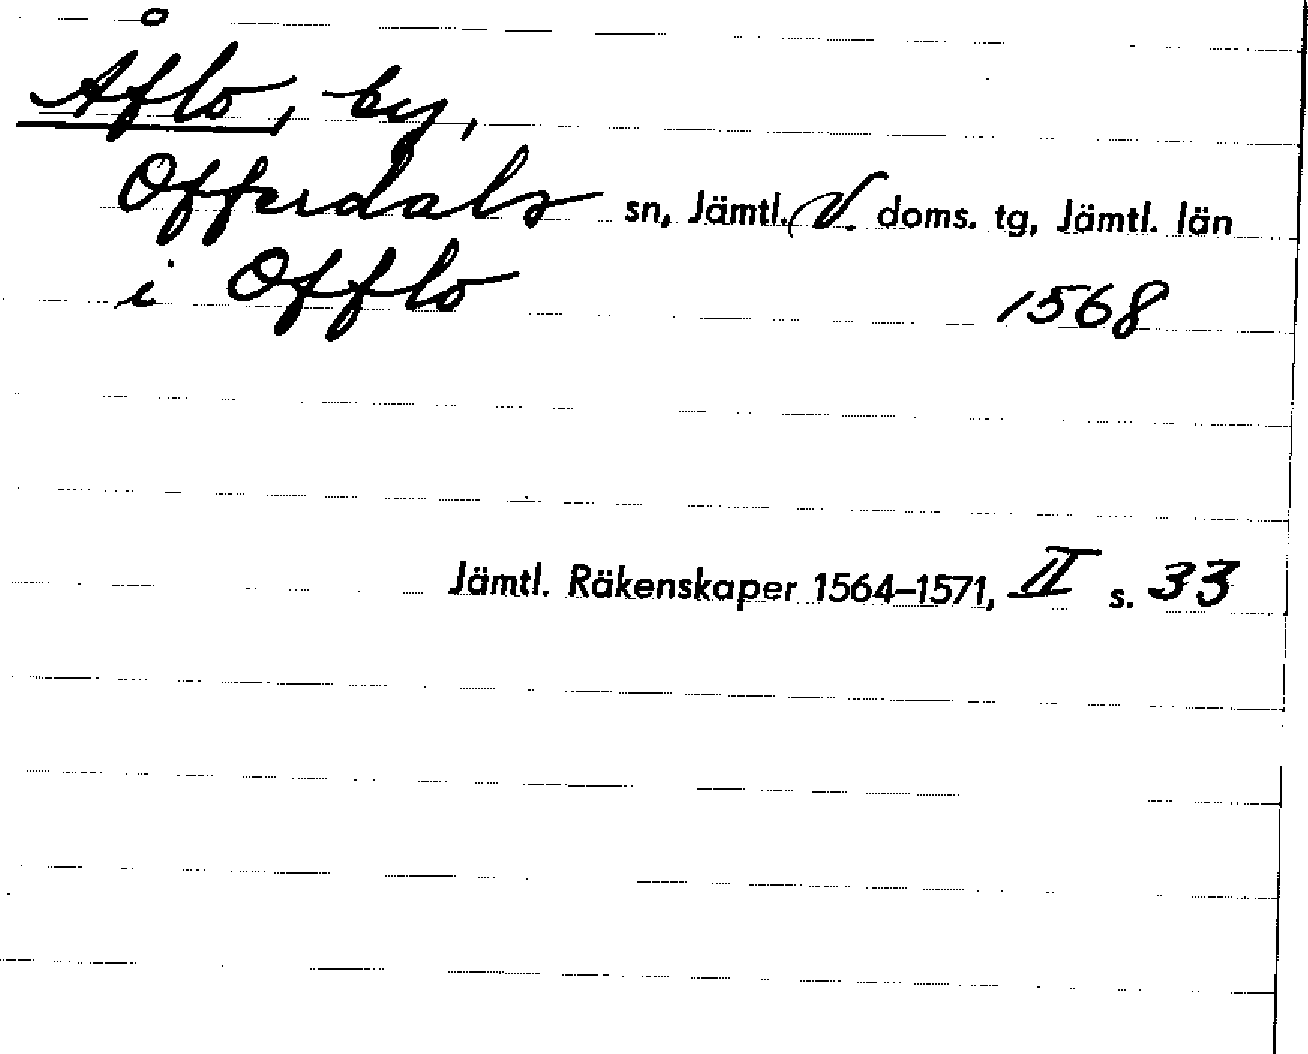 Åflo, by,
Offerdals sn, Jämtl. V. doms. tg, Jämtl. län
i Offlo 1568
Jämtl. Räkenskaper 1564–1571, II s. 33